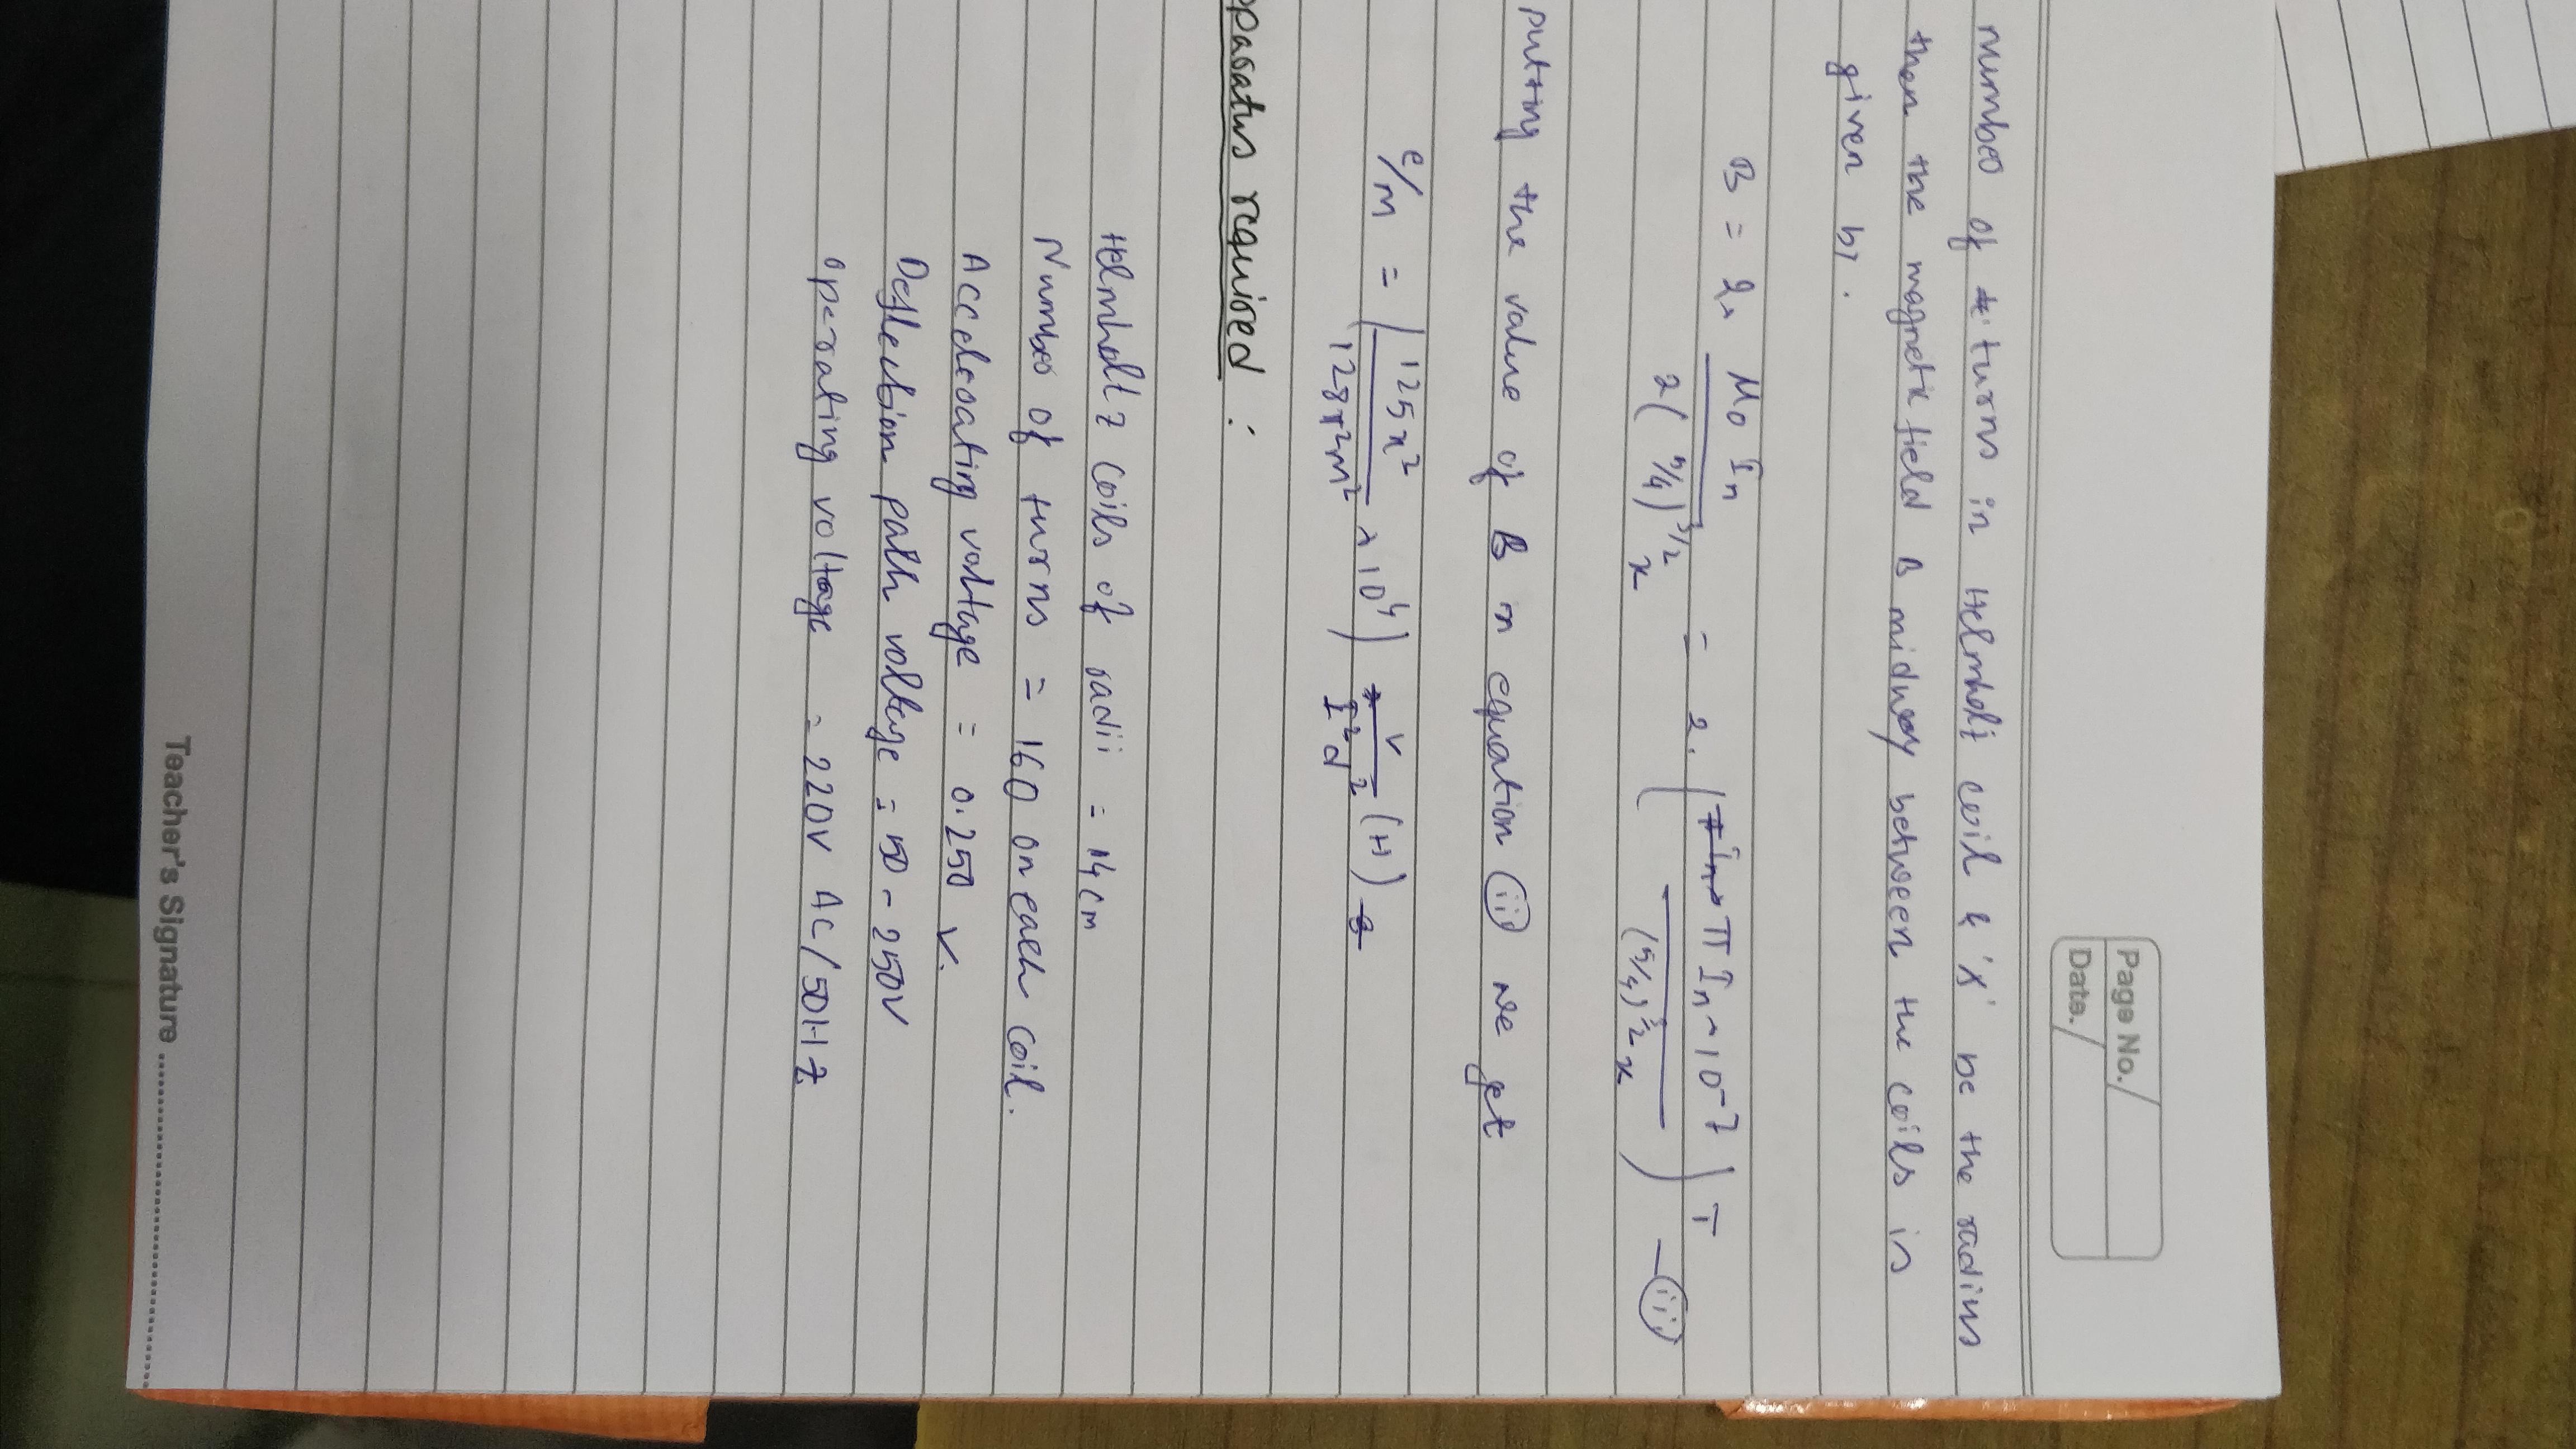 Page No./
Date./
number of turns in Helmholt coil & 'x' be the radius
then the magnetic field B midway between the coils is
given by.
B = 2x μ0 In / 2(5/4)^3/2 x = 2. (π In × 10^-7 / (5/4)^3/2 x) T — (iii)
putting the value of B in equation (ii) we get
e/m = (125x² / 128π²n² × 10^4) V / I²d² (H)
pparatus required :
Helmholtz coils of radii = 14cm
Number of turns = 160 on each coil.
Accelerating voltage = 0.250 V.
Deflection path voltage = 50 - 250V
operating voltage = 220V AC/50Hz
Teacher's Signature